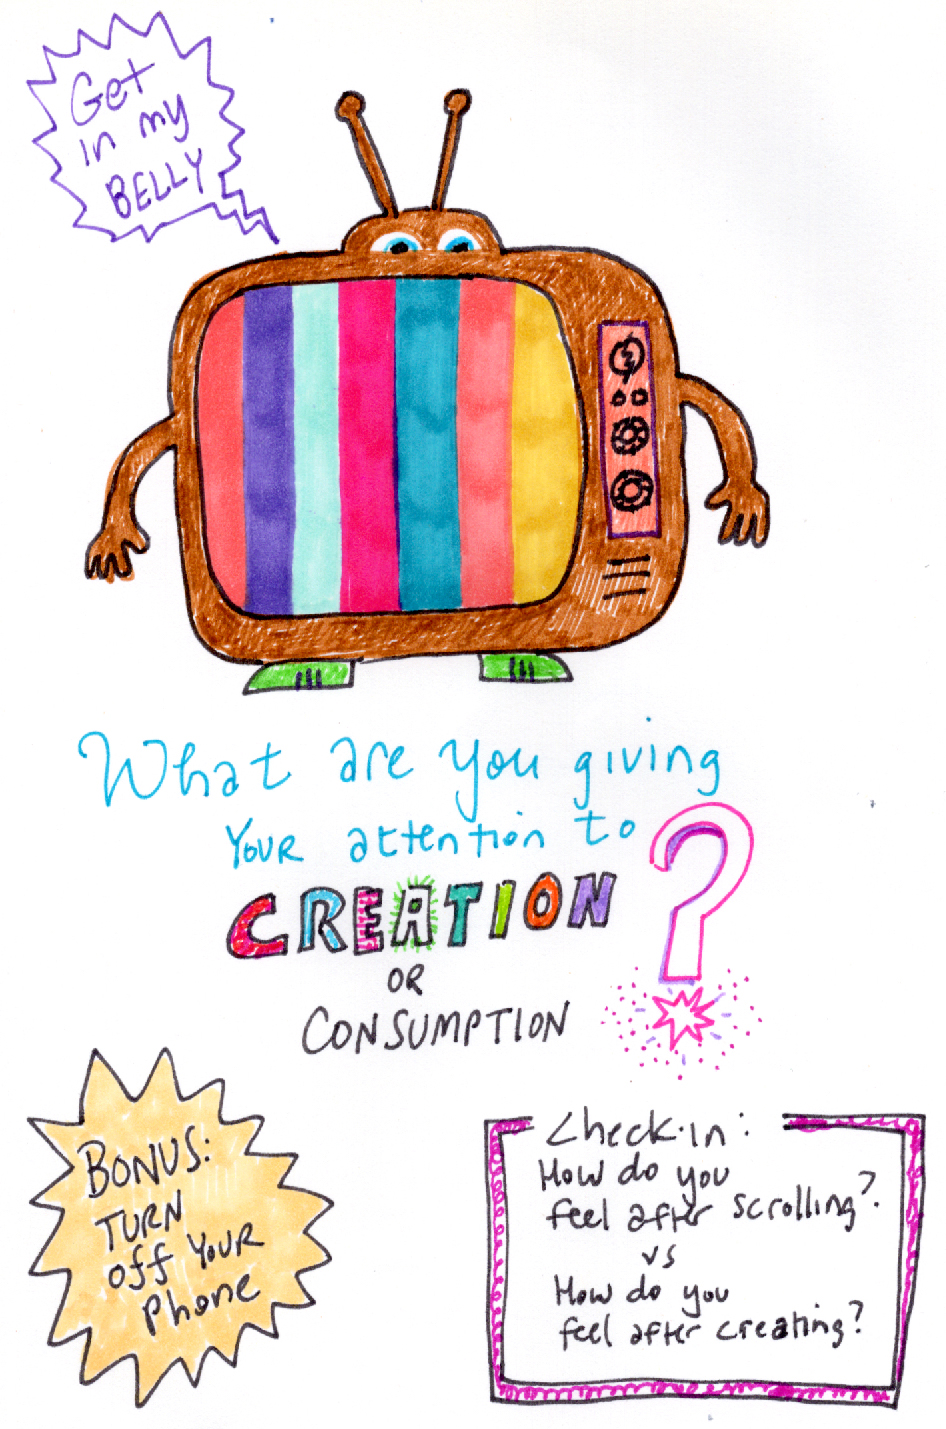 Get
in my
BELLY
What are you giving
YOUR attention to
CREATION
?
OR
CONSUMPTION
BONUS:
TURN
off YOUR
phone
Check-in:
How do you
feel after scrolling?
vs
How do you
feel after creating?